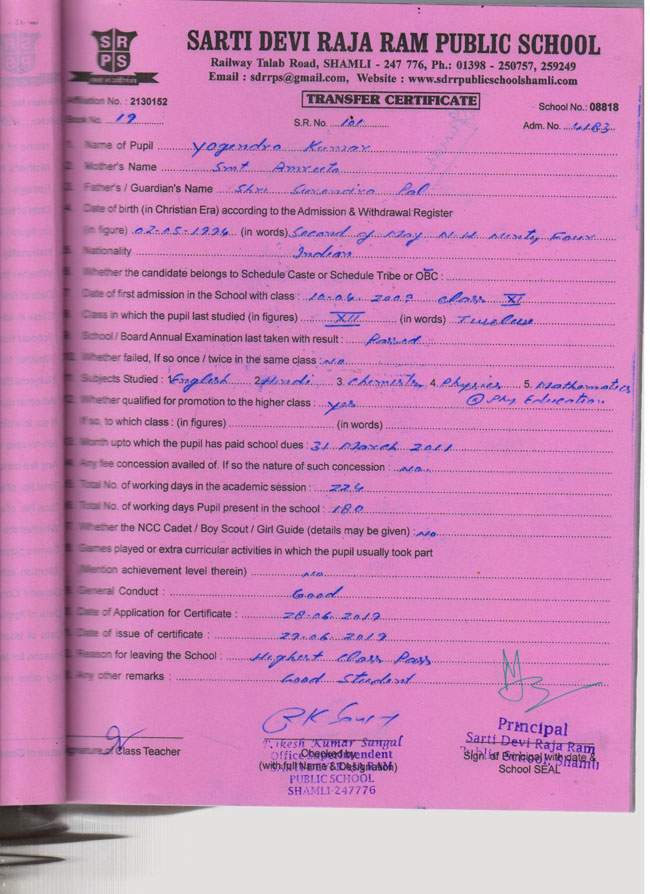 SRPS
SARTI DEVI RAJA RAM PUBLIC SCHOOL
Railway Talab Road, SHAMLI - 247 776, Ph.: 01398 - 250757, 259249
Email : sdrrps@gmail.com, Website : www.sdrrpublicschoolshamli.com
Affiliation No. : 2130152
TRANSFER CERTIFICATE
School No.: 08818
Book No. 19
S.R. No. 101
Adm. No. 4183
1. Name of Pupil Yogendra Kumar
2. Mother's Name Smt Amreeta
3. Father's / Guardian's Name Shri Surendra Pal
4. Date of birth (in Christian Era) according to the Admission & Withdrawal Register
(in figure) 02-05-1994 (in words) Second of May N.H. Ninty Four
5. Nationality Indian
6. Whether the candidate belongs to Schedule Caste or Schedule Tribe or OBC :
7. Date of first admission in the School with class : 10.06.2009 Class XI
8. Class in which the pupil last studied (in figures) XII (in words) Twelve
9. School / Board Annual Examination last taken with result : Passed
10. Whether failed, If so once / twice in the same class : No
11. Subjects Studied : 1 English 2. Hindi 3. Chemistry 4. Physics 5. Mathematics
12. Whether qualified for promotion to the higher class : yes ⑥ Phy Education
If so, to which class : (in figures) (in words)
13. Month upto which the pupil has paid school dues : 31 March 2011
14. Any fee concession availed of. If so the nature of such concession : No.
15. Total No. of working days in the academic session : 224
16. Total No. of working days Pupil present in the school : 180
17. Whether the NCC Cadet / Boy Scout / Girl Guide (details may be given) : No
18. Games played or extra curricular activities in which the pupil usually took part
(Mention achievement level therein) No
19. General Conduct : Good
20. Date of Application for Certificate : 28.06.2019
21. Date of issue of certificate : 29.06.2019
22. Reason for leaving the School : Highest Class Pass
23. Any other remarks : Good Student
Signature of Class Teacher
Rikesh Kumar Sangal
Office Superintendent
Checked by
(with full Name & Designation)
SARTI DEVI RAJA RAM
PUBLIC SCHOOL
SHAMLI-247776
Principal
Sarti Devi Raja Ram
Public School, Shamli
Sign. of Principal with date &
School SEAL